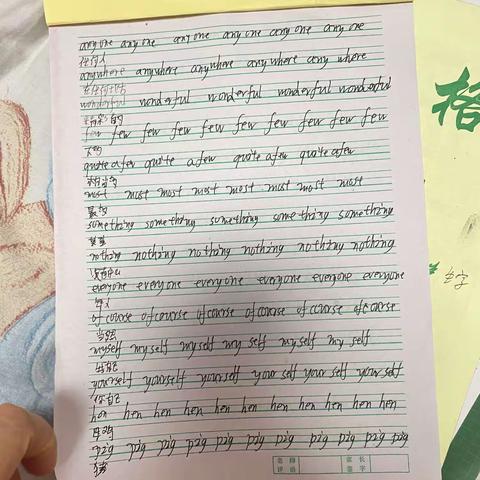 any one any one any one any one any one any one
任何人
anywhere anywhere anywhere anywhere any where
任何地方
wonderful wonderful wonderful wonderful wonderful
精彩的
few few few few few few few few few few
quite a few quite a few quite a few quite a few
most most most most most most most most
最多
something something something some thing something
某事
nothing nothing no thing nothing nothing nothing
没有什么
everyone every one every one everyone everyone everyone
每人
of course of course of course of course of course of course
当然
myself my self my self my self my self my self
我自己
yourself yourself yourself your self your self your self
你自己
hen hen hen hen hen hen hen hen hen hen hen
母鸡
pig pig pig pig pig pig pig pig pig pig
猪
老师评语
家长签字
格